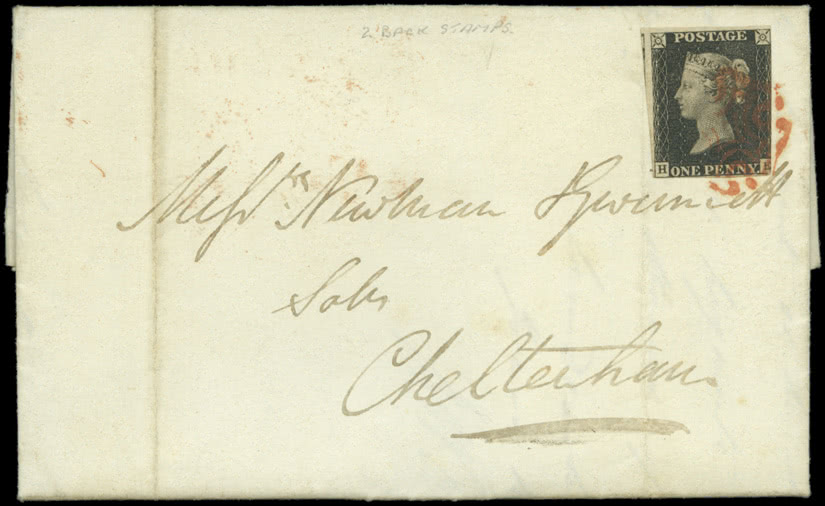 2 BACK STAMPS.
POSTAGE
ONE PENNY
H E
Messrs Newman & Gwinnett
Solrs
Cheltenham